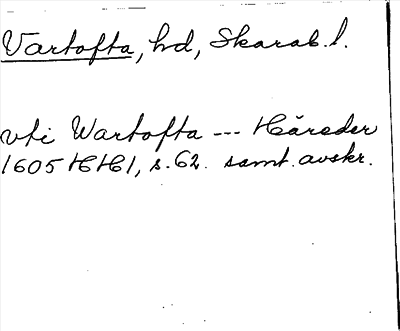 Vartofta, hd, Skarab. l.
vti Wartofta --- Häreder
1605 HH1, s. 62. samt. avskr.